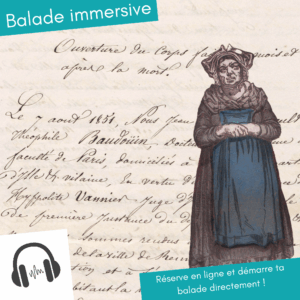 Balade immersive
Ouverture du Corps
après la mort.
Le 7 aout 1851, Nous Jean
Théophile Baudouin,
faculté de Paris, domiciliés à
d'Ille & vilaine, en vertu
Hyppolite Vannier, Juge
de première Instance du
sommes
de la ville de
Réserve en ligne et démarre ta
balade directement !